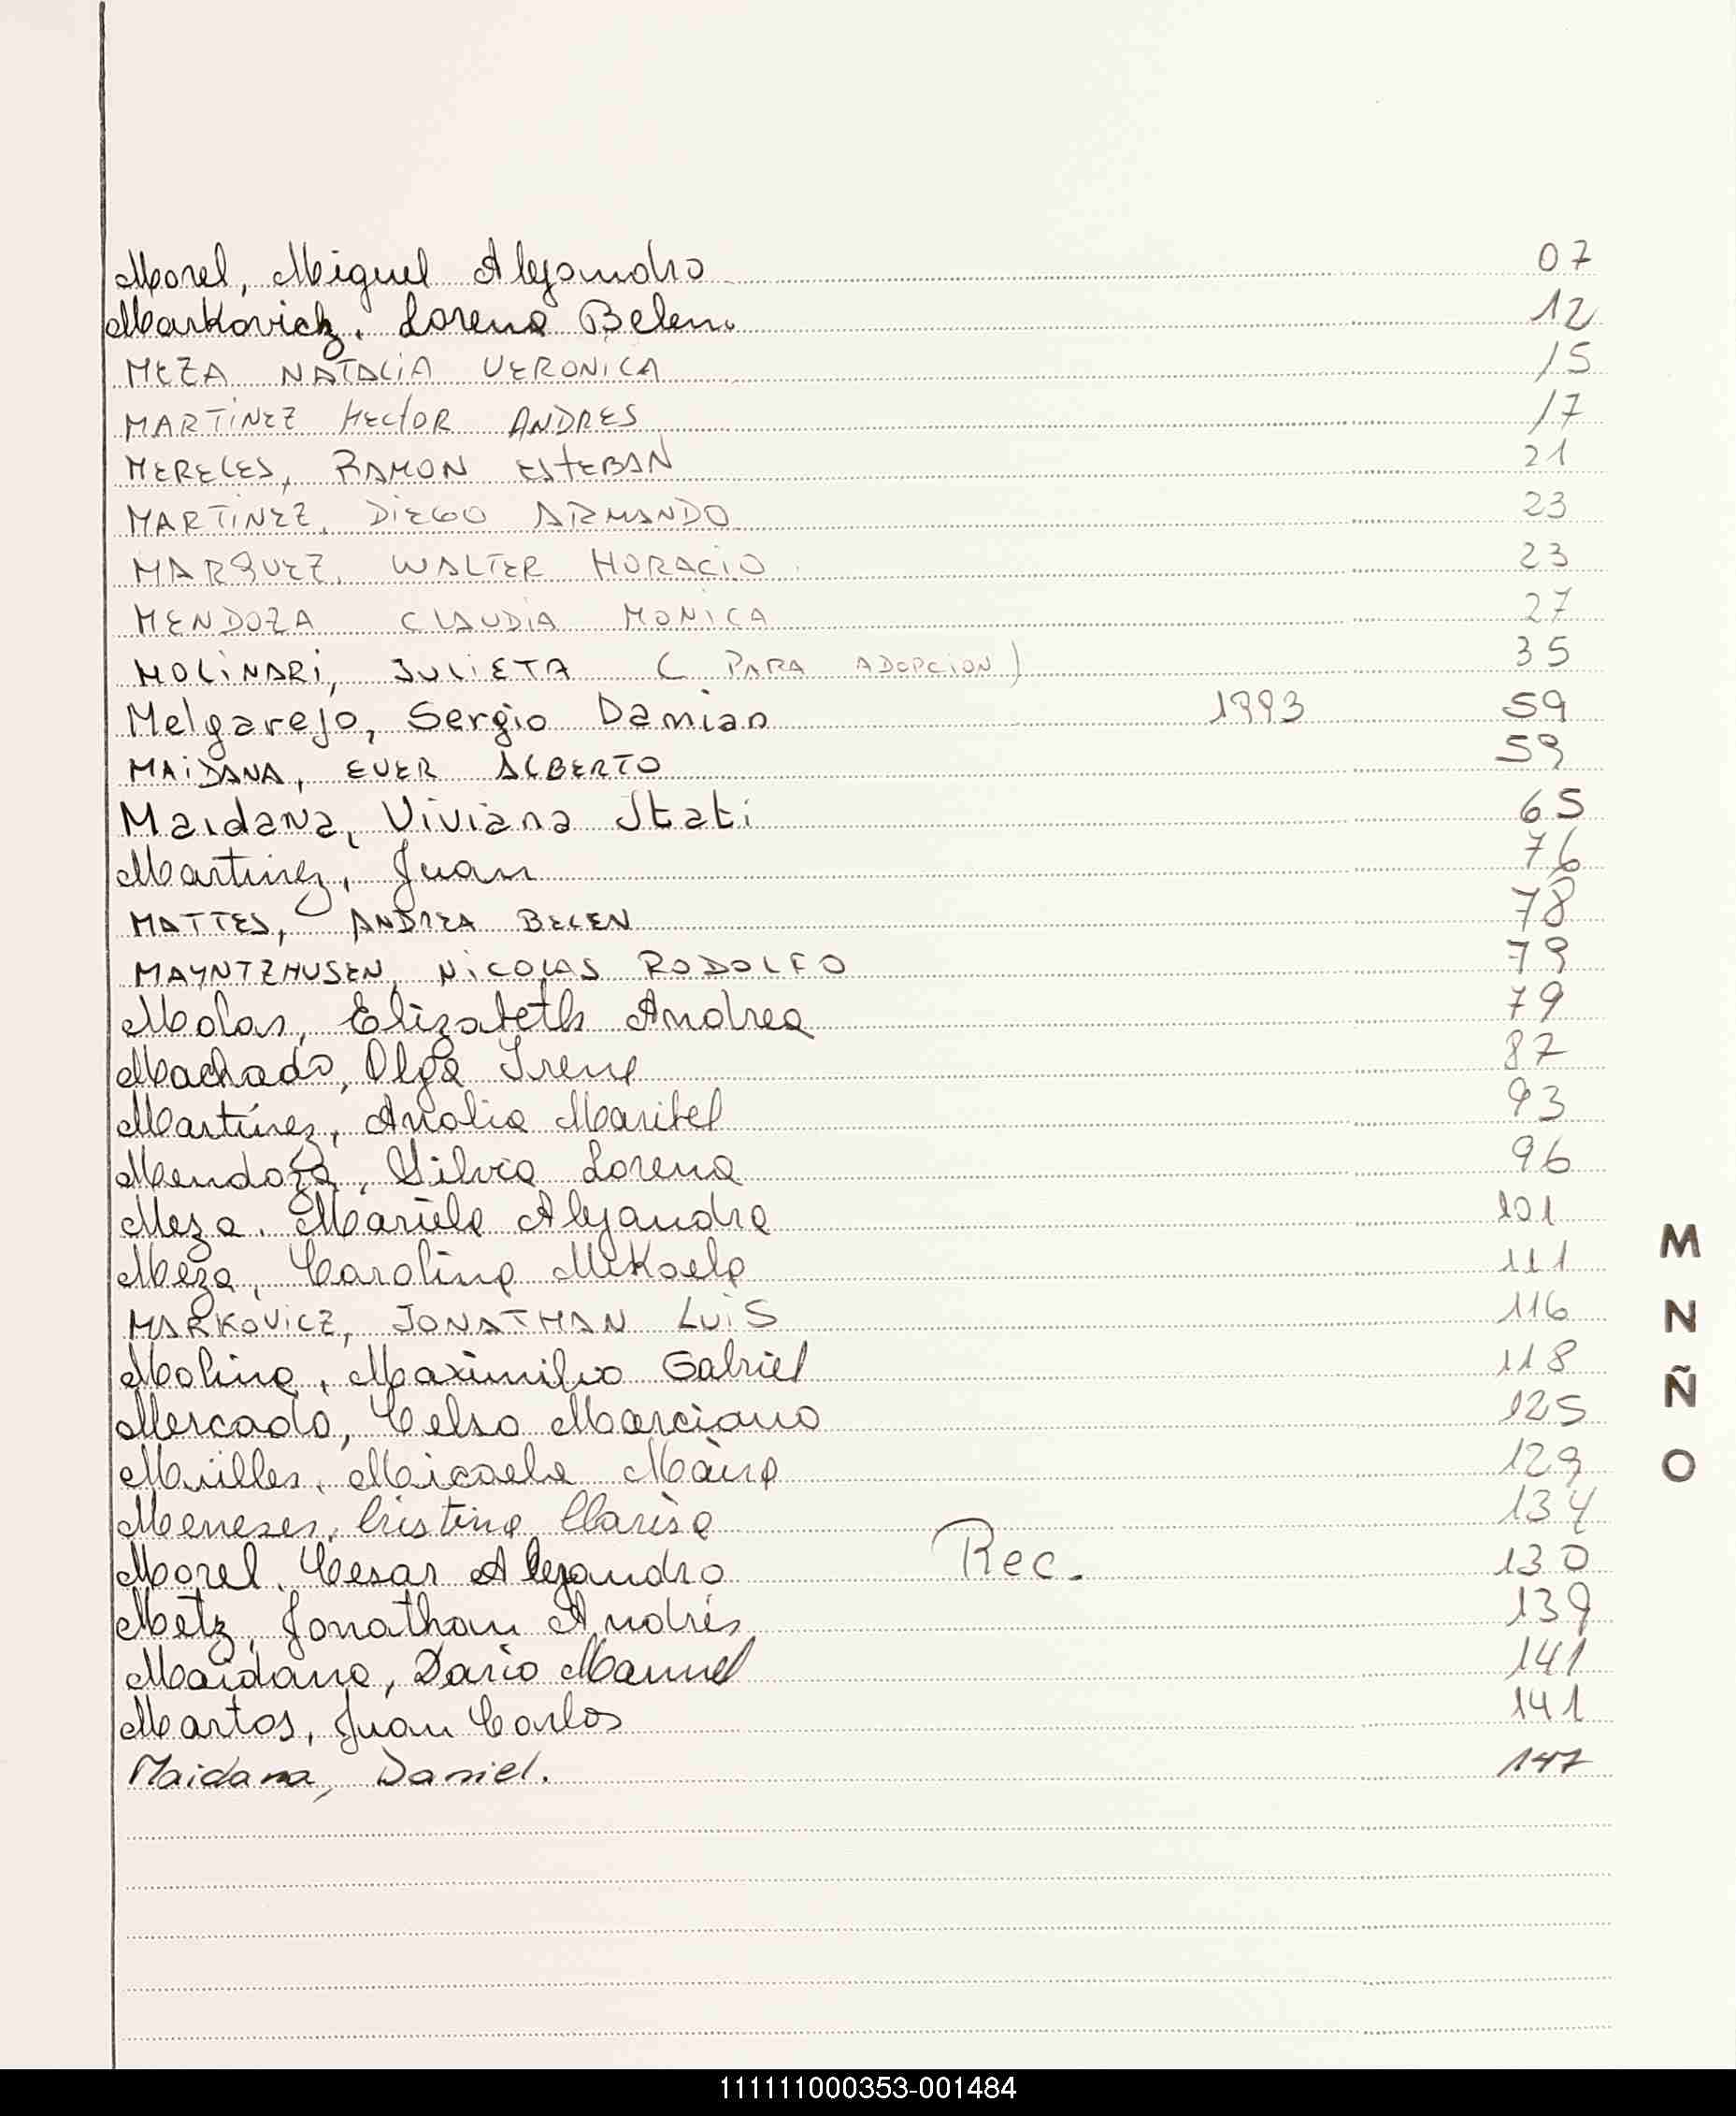 Morel, Miguel Alejandro 07
Markovicz. Lorena Belen. 12
MEZA NATALIA VERONICA 15
MARTINEZ HECTOR ANDRES 17
MERELES, RAMON ESTEBAN 21
MARTINEZ, DIEGO ARMANDO 23
MARQUEZ, WALTER HORACIO 23
MENDOZA CLAUDIA MONICA 27
MOLINARI, JULIETA (PARA ADOPCION) 35
Melgarejo, Sergio Damian 1993 59
MAIDANA, EVER ALBERTO 59
Maidana, Viviana Itati 65
Martinez, Juan 76
MATTES, ANDREA BELEN 78
MAYNTZHUSEN, NICOLAS RODOLFO 79
Molas, Elizabeth Andrea 79
Machado, Olga Irene 87
Martínez, Analia Maribel 93
Mendoza, Silvia Lorena 96
Meza. Mariela Alejandra 101
Meza, Carolina Mikaela 111
MARKOVICZ, JONATHAN LUIS 116
Molina, Maximilio Gabriel 118
Mercado, Celso Marciano 125
Micaela 129
Meneses, Cristina Clarisa 134
Morel, Cesar Alejandro Rec. 130
Metz, Jonathan Andrés 139
Maidana, Dario Manuel 141
Martos, Juan Carlos 141
Maidana, Daniel. 147
M
N
Ñ
O
111111000353-001484